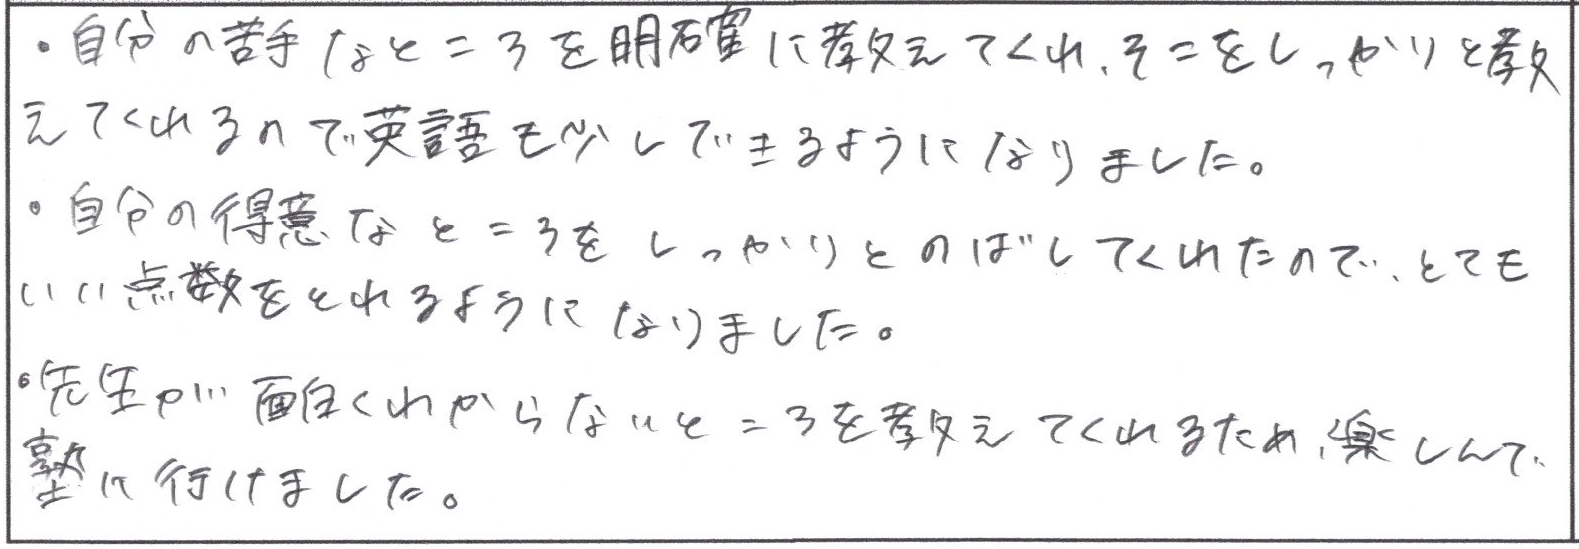 ・自分の苦手なところを明確に教えてくれ、そこをしっかりと教
えてくれるので英語も少しできるようになりました。
・自分の得意なところをしっかりとのばしてくれたので、とても
いい点数をとれるようになりました。
・先生が面白くわからないところを教えてくれるため、楽しんで
塾に行けました。